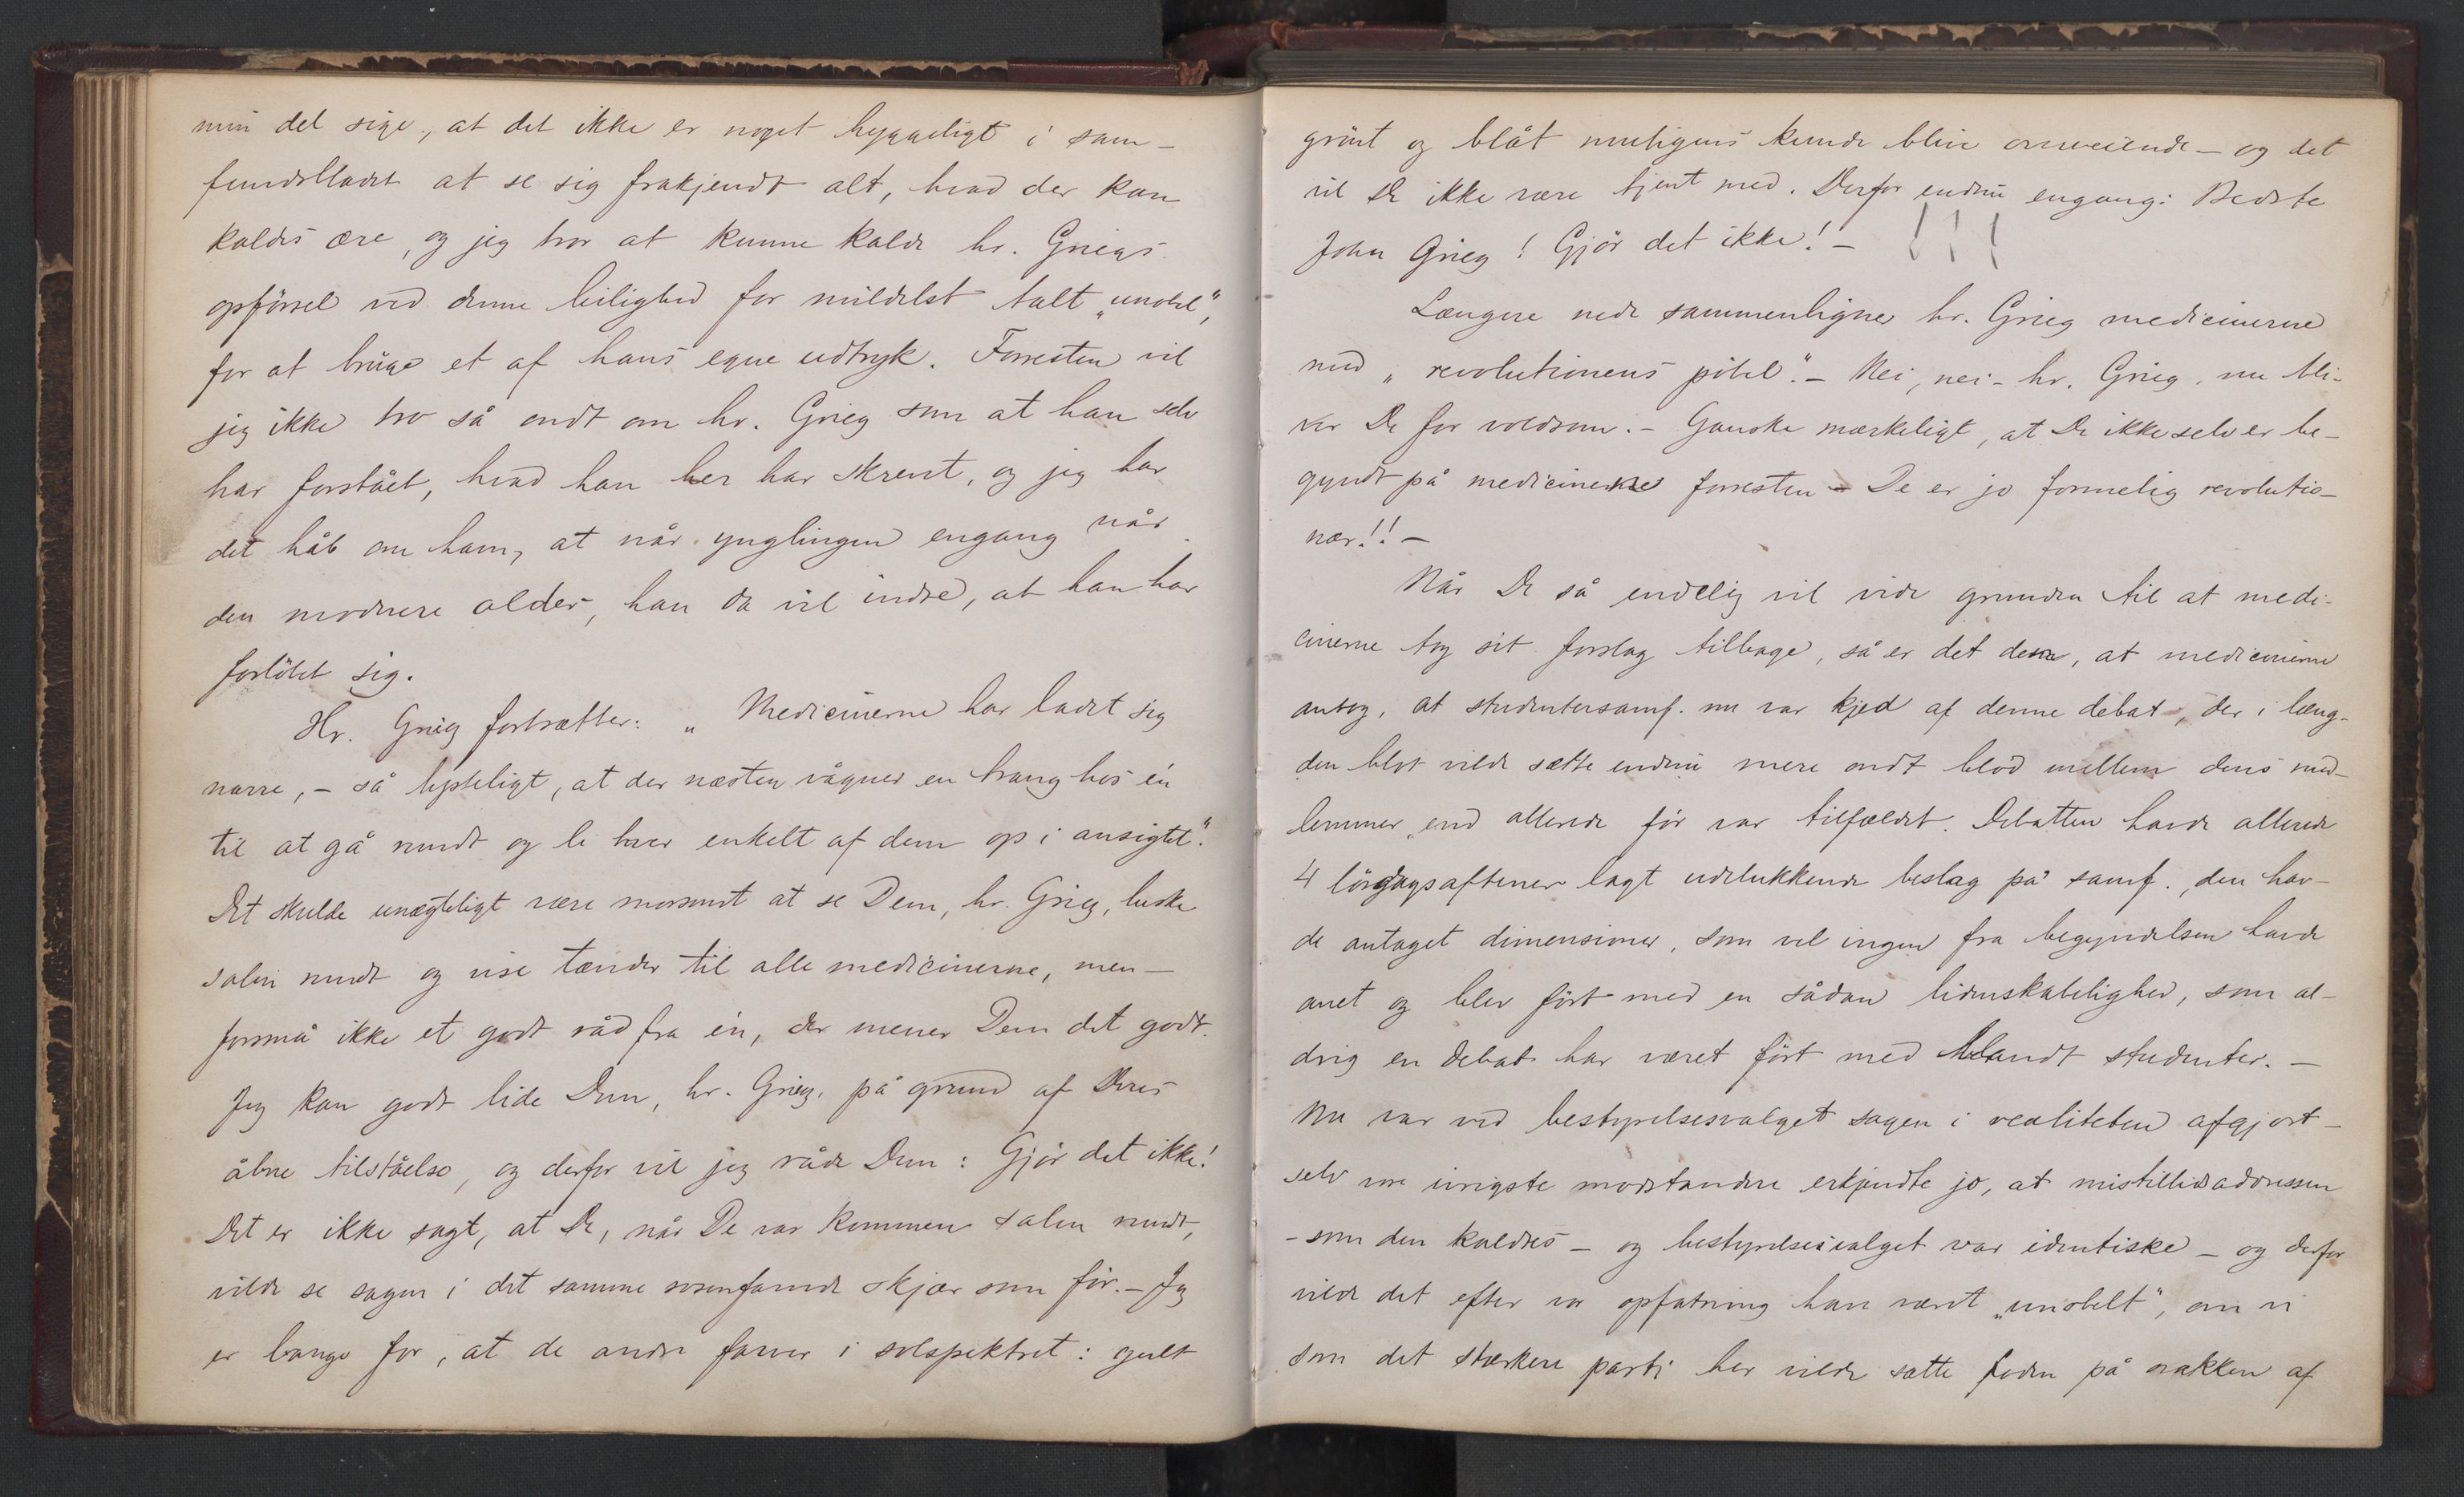 min del sige, at det ikke er noget hyggeligt i sam-
fundsbladet at se sig frakjendt alt, hvad der kan
kaldes ære, og jeg tror at kunne kalde hr. Griegs
opførsel ved denne leilighed for mildelst talt „unobel",
for at bruge et af hans egne udtryk. Forresten vil
jeg ikke tro så ondt om hr. Grieg som at han selv
har forstået, hvad han her har skrevet, og jeg har
det håb om ham, at når ynglingen engang når
den modnere alder, han da vil indse, at han har
forløbet sig.
Hr. Grieg fortsætter: „Medicinerne har ladet sig
narre, – så lysteligt, at der næsten vågner en trang hos én
til at gå rundt og le hver enkelt af dem op i ansigtet".
Det skulde unægteligt være morsomt at se Dem, hr. Grieg, luske
salen rundt og vise tænder til alle medicinerne, men –
forsmå ikke et godt råd fra én, der mener Dem det godt.
Jeg kan godt lide Dem, hr. Grieg, på grund af Deres
åbne tilståelse, og derfor vil jeg råde Dem: Gjør det ikke!
Det er ikke sagt, at De, når De var kommen salen rundt,
vilde se sagen i det samme rosenfarvede skjær som før. – Jeg
er bange for, at de andre farver i solspektret: gult
grønt og blåt muligens kunde blive overveiende – og det
vil De ikke være tjent med. Derfor endnu engang: Bedste
John Grieg! Gjør det ikke! – !!!
Længere nede sammenligner hr. Grieg medicinerne
med „revolutionens pöbel". – Nei, nei – hr. Grieg, nu bli-
ver De for voldsom. – Ganske mærkeligt, at De ikke selv er be-
gyndt på medicinerne forresten – De er jo formelig revolutio-
nær!! –
Når De så endelig vil vide grunden til at medi-
cinerne tog sit forslag tilbage, så er det den, at medicinerne
antog, at studentersamf. nu var kjed af denne debat, der i læng-
den blot vilde sætte endnu mere ondt blod mellem dens med-
lemmer, end allerede før var tilfældet. Debatten havde allerede
4 lørdagsaftener lagt udelukkende beslag på samf., den hav-
de antaget dimensioner, som vel ingen fra begyndelsen havde
anet og blev ført med en sådan lidenskabelighed, som al-
drig en debat har været ført med blandt studenter. –
Nu var ved bestyrelsesvalget sagen i realiteten afgjort –
selv vore ivrigste modstandere erkjendte jo, at mistillidsadressen
– som den kaldtes – og bestyrelsesvalget var identiske – og derfor
vilde det efter vor opfatning have været „unobelt", om vi
som det stærkere parti her vilde sætte foden på nakken af